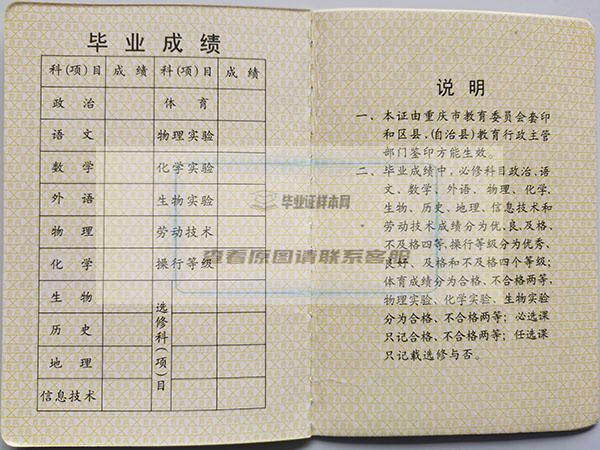 毕业成绩
科(项)目 成绩 科(项)目 成绩
政治 体育
语文 物理实验
数学 化学实验
外语 生物实验
物理 劳动技术
化学 操行等级
生物
历史
地理
信息技术
选修科(项)目
说明
一、本证由重庆市教育委员会套印
和区县、(自治县)教育行政主管
部门签印方能生效。
二、毕业成绩中,必修科目政治、语
文、数学、外语、物理、化学、
生物、历史、地理、信息技术和
劳动技术成绩分为优、良、及格、
不及格四等,操行等级分为优秀、
良好、及格和不及格四个等级;
体育成绩分为合格、不合格两等,
物理实验、化学实验、生物实验
分为合格、不合格两等;必选课
只记合格、不合格两等;任选课
只记载选修与否。
毕业证样本网
查看原图请联系客服